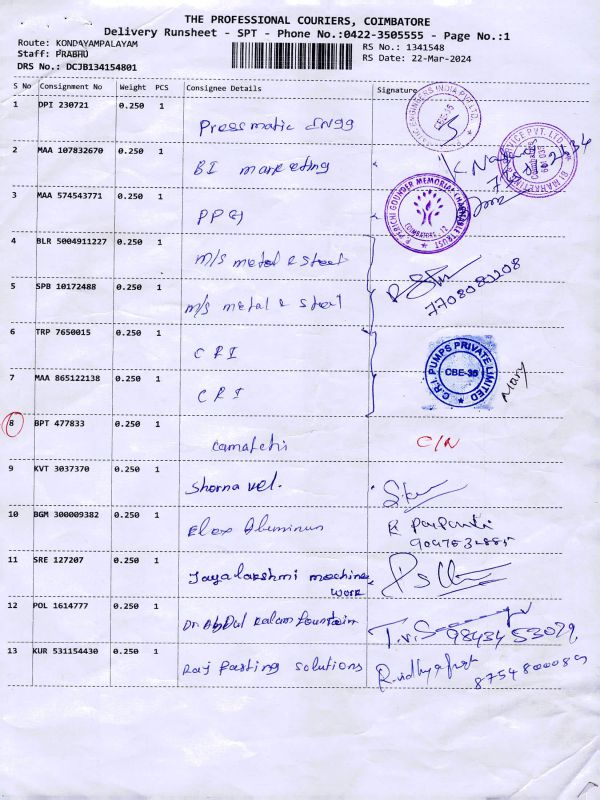 THE PROFESSIONAL COURIERS, COIMBATORE
Delivery Runsheet - SPT - Phone No.:0422-3505555 - Page No.:1
Route: KONDAYAMPALAYAM
Staff: PRABHU
DRS No.: DCJB134154801
RS No.: 1341548
RS Date: 22-Mar-2024
S No Consignment No Weight PCS Consignee Details Signature
1 DPI 230721 0.250 1 Pressmatic engg
2 MAA 107832670 0.250 1 BI marketing
3 MAA 574543771 0.250 1 PPG
P PERICHI GOUNDER MEMORIAL CHARITABLE TRUST
COIMBATORE
4 BLR 5004911227 0.250 1 m/s metal & steel
5 SPB 10172488 0.250 1 m/s metal & steel
7708080208
6 TRP 7650015 0.250 1 CRI
7 MAA 865122138 0.250 1 CRI
C.R.I. PUMPS PRIVATE LIMITED
CBE-35
Mary
8 BPT 477833 0.250 1 Camatchi C/N
9 KVT 3037370 0.250 1 Shorna vel.
10 BGM 300009382 0.250 1 Elex Aluminun
11 SRE 127207 0.250 1 Jayalakshmi machine
work
12 POL 1614777 0.250 1 Dr Abdul kalam fountain
9843453029
13 KUR 531154430 0.250 1 Raj Pasting solutions
8754800089